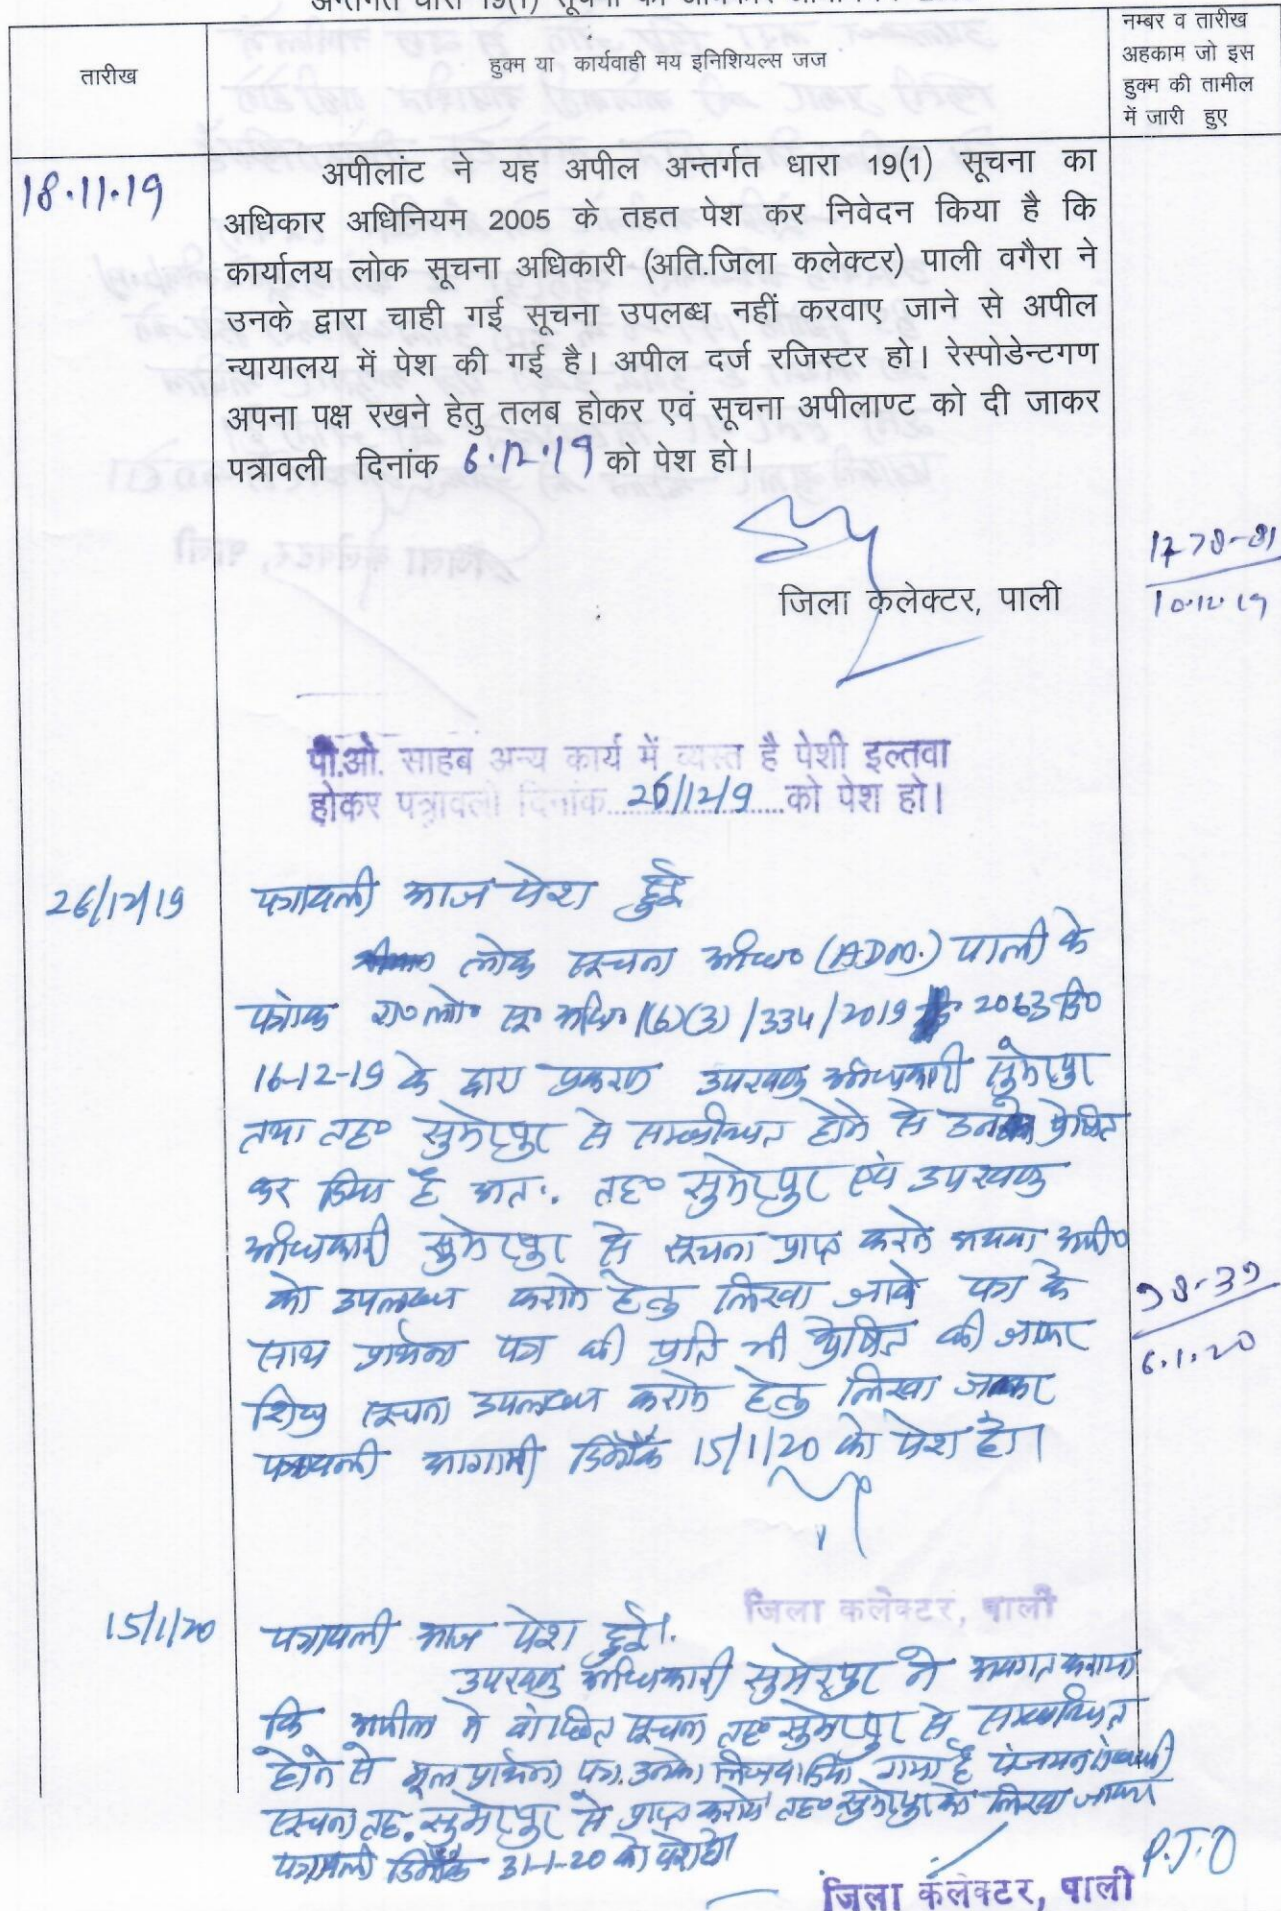 अन्तर्गत धारा 19(1) सूचना का अधिकार अधिनियम 2005
तारीख
हुक्म या कार्यवाही मय इनिशियल्स जज
नम्बर व तारीख
अहकाम जो इस
हुक्म की तामील
में जारी हुए
18.11.19
अपीलांट ने यह अपील अन्तर्गत धारा 19(1) सूचना का
अधिकार अधिनियम 2005 के तहत पेश कर निवेदन किया है कि
कार्यालय लोक सूचना अधिकारी (अति.जिला कलेक्टर) पाली वगैरा ने
उनके द्वारा चाही गई सूचना उपलब्ध नहीं करवाए जाने से अपील
न्यायालय में पेश की गई है। अपील दर्ज रजिस्टर हो। रेस्पोडेन्टगण
अपना पक्ष रखने हेतु तलब होकर एवं सूचना अपीलाण्ट को दी जाकर
पत्रावली दिनांक 6.12.19 को पेश हो।
जिला कलेक्टर, पाली
1278-81
10.12.19
पी.ओ. साहब अन्य कार्य में व्यस्त है पेशी इल्तवा
होकर पत्रावली दिनांक 26/12/9 को पेश हो।
26/12/19
पत्रावली आज पेश हुई
लोक सूचना अधि० (ADM.) पाली के
पत्रांक रा० लो० सू० अधि० 1(6)(3)/334/2019 2063 दि०
16-12-19 के द्वारा प्रकरण उपखण्ड अधिकारी सुमेरपुर
तथा तह० सुमेरपुर से सम्बन्धित होने से उनको प्रेषित
कर दिया है अतः तह० सुमेरपुर एवं उपखण्ड
अधिकारी सुमेरपुर से सूचना प्राप्त करने अथवा अपी०
को उपलब्ध कराने हेतु लिखा जावे पत्र के
साथ प्रार्थना पत्र की प्रति भी प्रेषित की जाकर
शिघ्र सूचना उपलब्ध कराने हेतु लिखा जाकर
पत्रावली आगामी दिनांक 15/1/20 को पेश हो।
38-39
6.1.20
जिला कलेक्टर, पाली
15/1/20
पत्रावली आज पेश हुई।
उपखण्ड अधिकारी सुमेरपुर ने अवगत कराया
कि अपील में वांछित सूचना तह० सुमेरपुर से सम्बन्धित
होने से मूल प्रार्थना पत्र उनको भिजवा दिया गया है
सूचना तह. सुमेरपुर से प्राप्त करावे तह० सुमेरपुर को लिखा जाकर
पत्रावली दिनांक 31-1-20 को पेश हो।
जिला कलेक्टर, पाली
P.T.O